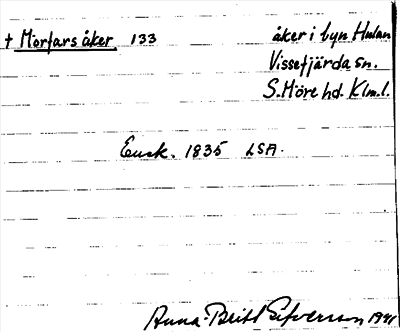 † Morfars åker 133 åker i byn Hulan
Vissefjärda sn.
S. Möre hd. Klm.l.
Ensk. 1835 LSA.
Anna-Britt Sifverson 1941